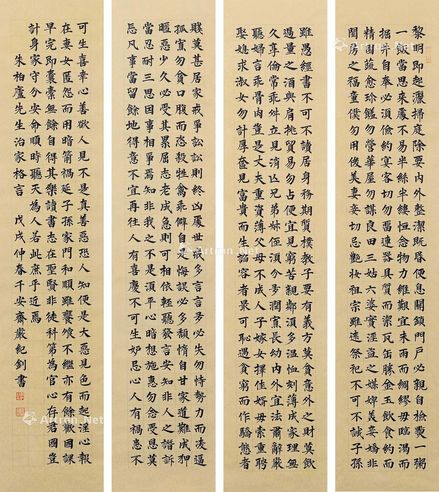 黎明即起灑掃庭除要內外整潔既昏便息關鎖門戶必親自檢點一粥
一飯當思來處不易半絲半縷恒念物力維艱宜未雨而綢繆毋臨渴而
掘井自奉必須儉約宴客切勿留連器具質而潔瓦缶勝金玉飲食約而
精園蔬愈珍饈勿營華屋勿謀良田三姑六婆實淫盜之媒婢美妾嬌非
閨房之福童僕勿用俊美妻妾切忌艷妝祖宗雖遠祭祀不可不誠子孫
雖愚經書不可不讀居身務期質樸教子要有義方莫貪意外之財莫飲
過量之酒與肩挑貿易勿占便宜見窮苦親鄰須多溫恤刻薄成家理無
久享倫常乖舛立見消亡兄弟叔姪須分多潤寡長幼內外宜法肅辭嚴
聽婦言乖骨肉豈是丈夫重資薄父母不成人子嫁女擇佳婿毋索重聘
娶媳求淑女勿計厚奩見富貴而生諂容者最可恥遇貧窮而作驕態者
賤莫甚居家戒爭訟訟則終凶處世戒多言言多必失勿恃勢力而凌逼
孤寡勿貪口腹而恣殺牲禽乖僻自是悔誤必多頹惰自甘家道難成狎
暱惡少久必受其累屈志老成急則可相依輕聽發言安知非人之譖訴
當忍耐三思因事相爭焉知非我之不是須平心暗想施惠勿念受恩莫
忘凡事當留餘地得意不宜再往人有喜慶不可生妒忌心人有禍患不
可生喜幸心善欲人見不是真善惡恐人知便是大惡見色而起淫心報
在妻女匿怨而用暗箭禍延子孫家門和順雖饔飧不繼亦有餘歡國課
早完即囊橐無餘自得其樂讀書志在聖賢非徒科第為官心存君國豈
計身家守分安命順時聽天為人若此庶乎近焉
朱柏廬先生治家格言 戊戌仲春千安齋嚴紀釗書